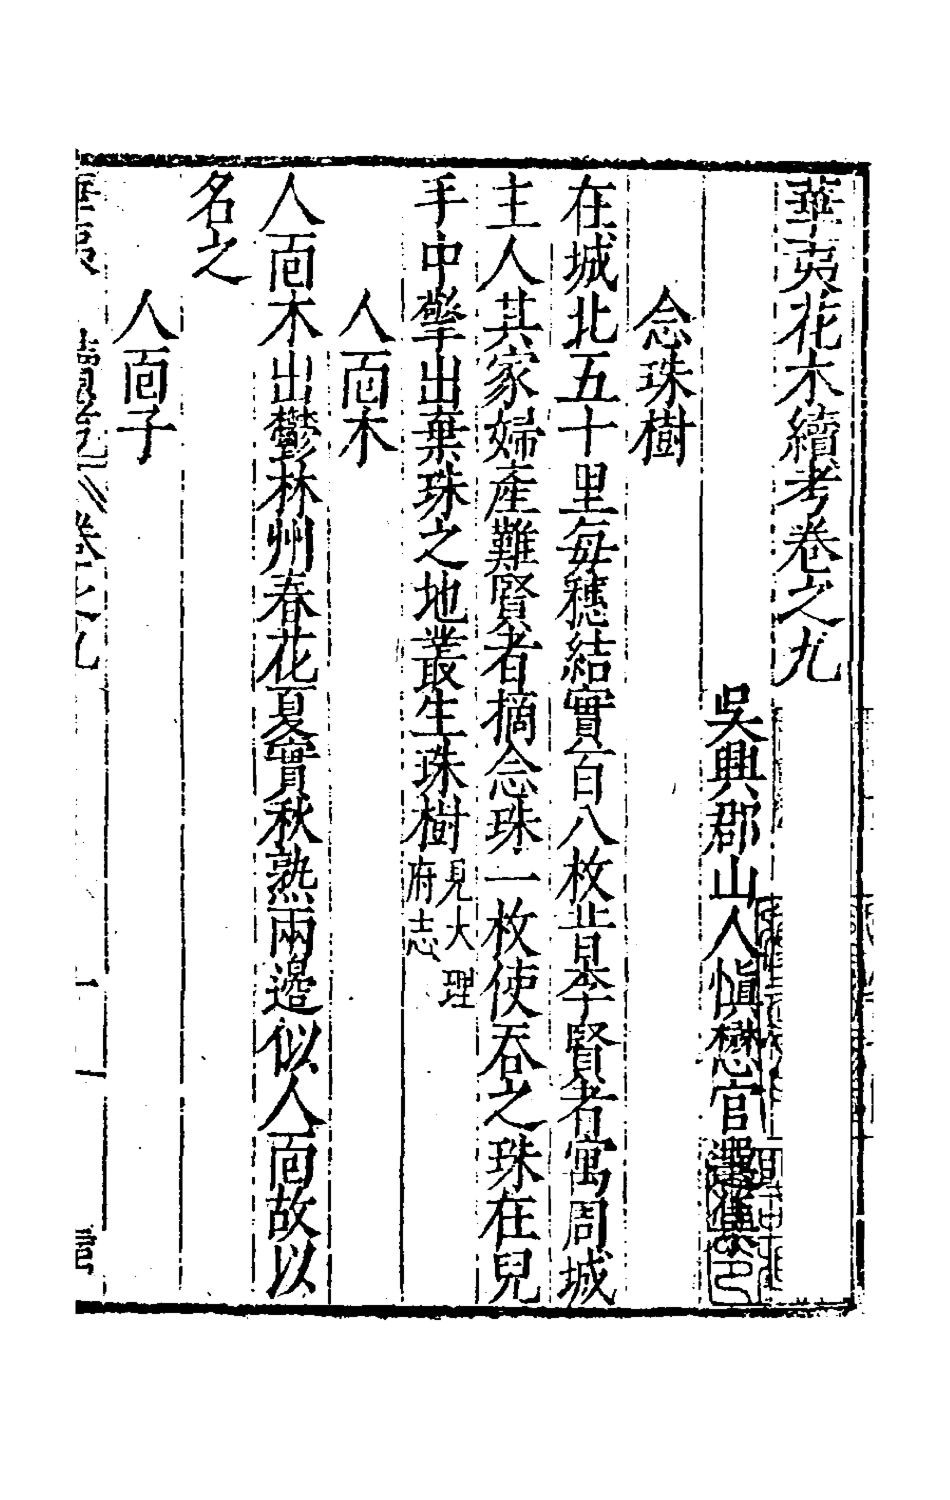 華夷花木續考卷之九
吳興郡山人慎懋官選集
念珠樹
在城北五十里每穗結實百八枚昔李賢者寓周城
主人其家婦產難賢者摘念珠一枚使吞之珠在兒
手中擎出棄珠之地叢生珠樹見大理府志
人面木
人面木出鬱林州春花夏實秋熟兩邊似人面故以
名之
人面子
華夷 續考 卷之九